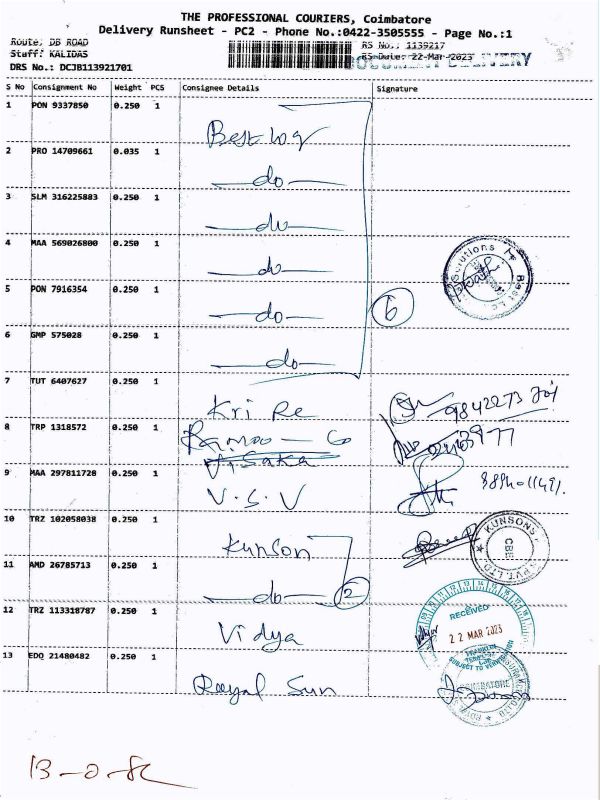 THE PROFESSIONAL COURIERS, Coimbatore
Delivery Runsheet - PC2 - Phone No.:0422-3505555 - Page No.:1
Route: DB ROAD RS No.: 1139217
Staff: KALIDAS RS Date: 22-Mar-2023
DRS No.: DCJB113921701
DOCUMENT DELIVERY
S No Consignment No Weight PCS Consignee Details Signature
1 PON 9337850 0.250 1 Best log
2 PRO 14709661 0.035 1 do
3 SLM 316225883 0.250 1 do
4 MAA 569026800 0.250 1 do
Solutions Best
5 PON 7916354 0.250 1 do 6
6 GMP 575028 0.250 1 do
7 TUT 6407627 0.250 1 Kri Re
8 TRP 1318572 0.250 1
9 MAA 297811728 0.250 1 V.S.V
10 TRZ 102058038 0.250 1 Kunson
KUNSONS PVT.LTD CBE
11 AMD 26785713 0.250 1 do 2
12 TRZ 113318787 0.250 1 Vidya
RECEIVED
22 MAR 2023
SUBJECT TO VERIFICATION
13 EDQ 21480482 0.250 1 Royal Sun
COIMBATORE